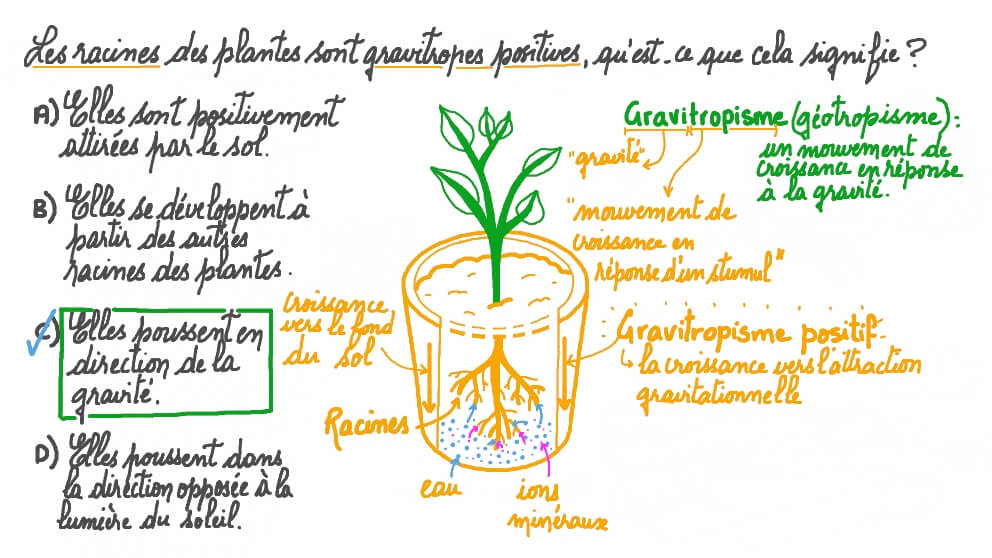 Les racines des plantes sont gravitropes positives, qu'est-ce que cela signifie ?
A) Elles sont positivement
attirées par le sol.
B) Elles se développent à
partir des autres
racines des plantes.
C) Elles poussent en
direction de la
gravité.
D) Elles poussent dans
la direction opposée à la
lumière du soleil.
croissance
vers le fond
du sol
Racines
eau
ions
minéraux
Gravitropisme (géotropisme) :
un mouvement de
croissance en réponse
à la gravité.
"gravité"
"mouvement de
croissance en
réponse d'un stumul"
Gravitropisme positif
la croissance vers l'attraction
gravitationnelle